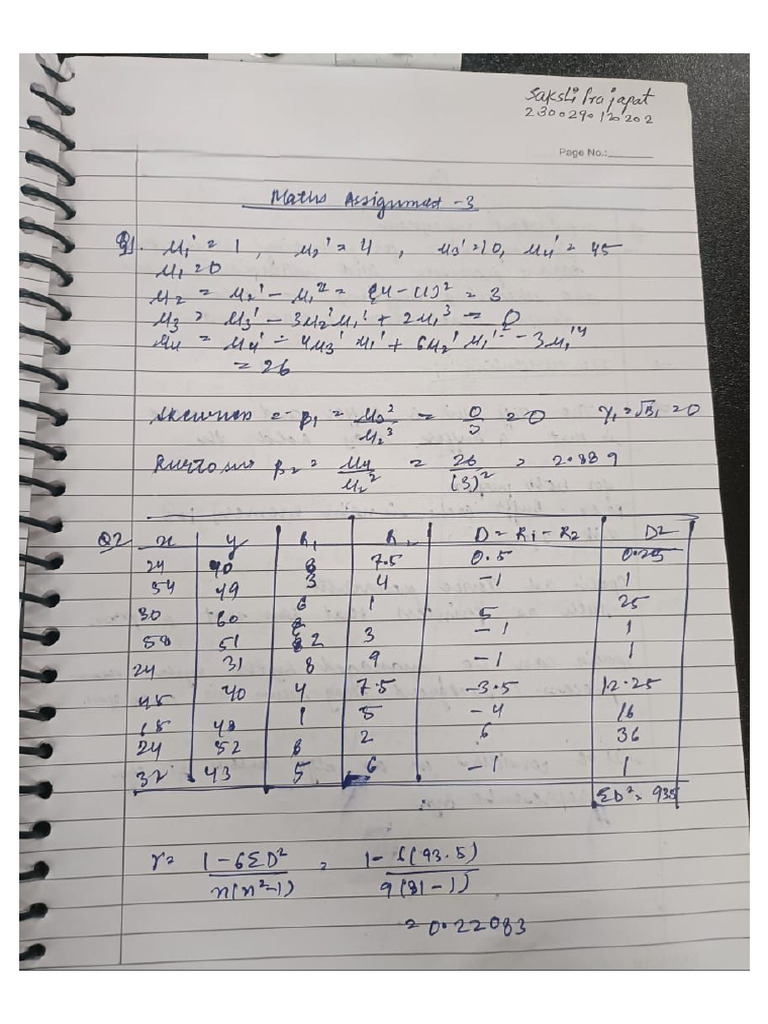 Sakshi Prajapat
2300290120202
Page No.:
Maths Assignment -3
Q1. μ1' = 1, μ2' = 4, μ3' = 10, μ4' = 45
μ1 = 0
μ2 = μ2' - μ1'² = 4 - (1)² = 3
μ3 = μ3' - 3μ2'μ1' + 2μ1'³ = 0
μ4 = μ4' - 4μ3'μ1' + 6μ2'μ1'² - 3μ1'⁴
= 26
Skewness = β1 = μ3²/μ2³ = 0/3 = 0 γ1 = √β1 = 0
Kurtosis β2 = μ4/μ2² = 26/(3)² = 2.889
Q2 x y R1 R2 D = R1 - R2 D²
24 40 8 7.5 0.5 0.25
54 49 3 4 -1 1
30 60 6 1 5 25
58 51 2 3 -1 1
24 31 8 9 -1 1
45 40 4 7.5 -3.5 12.25
48 1 5 -4 16
24 52 8 2 6 36
32 43 5 6 -1 1
ΣD² = 93.5
r = 1-6ΣD²/n(n²-1) = 1-6(93.5)/9(81-1)
= 0.22083